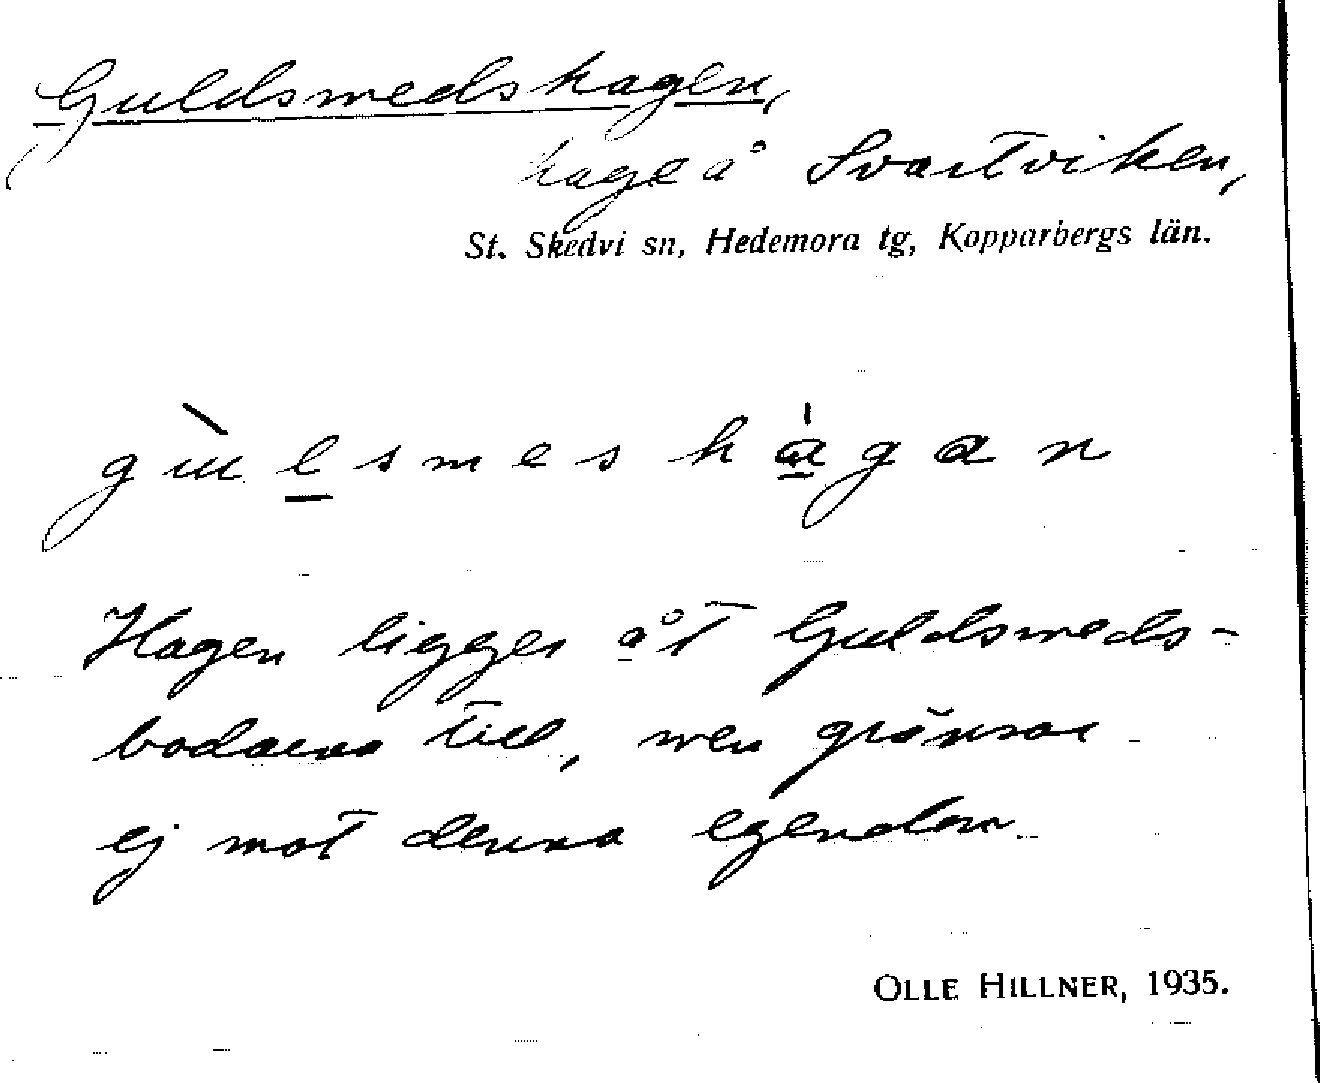 Guldsmedshagen,
hage å Svartviken,
St. Skedvi sn, Hedemora tg, Kopparbergs län.
gùlsmeshágan
Hagen ligger åt Guldsmeds-
bodarna till, men gränsar
ej mot denna egendom.
OLLE HILLNER, 1935.